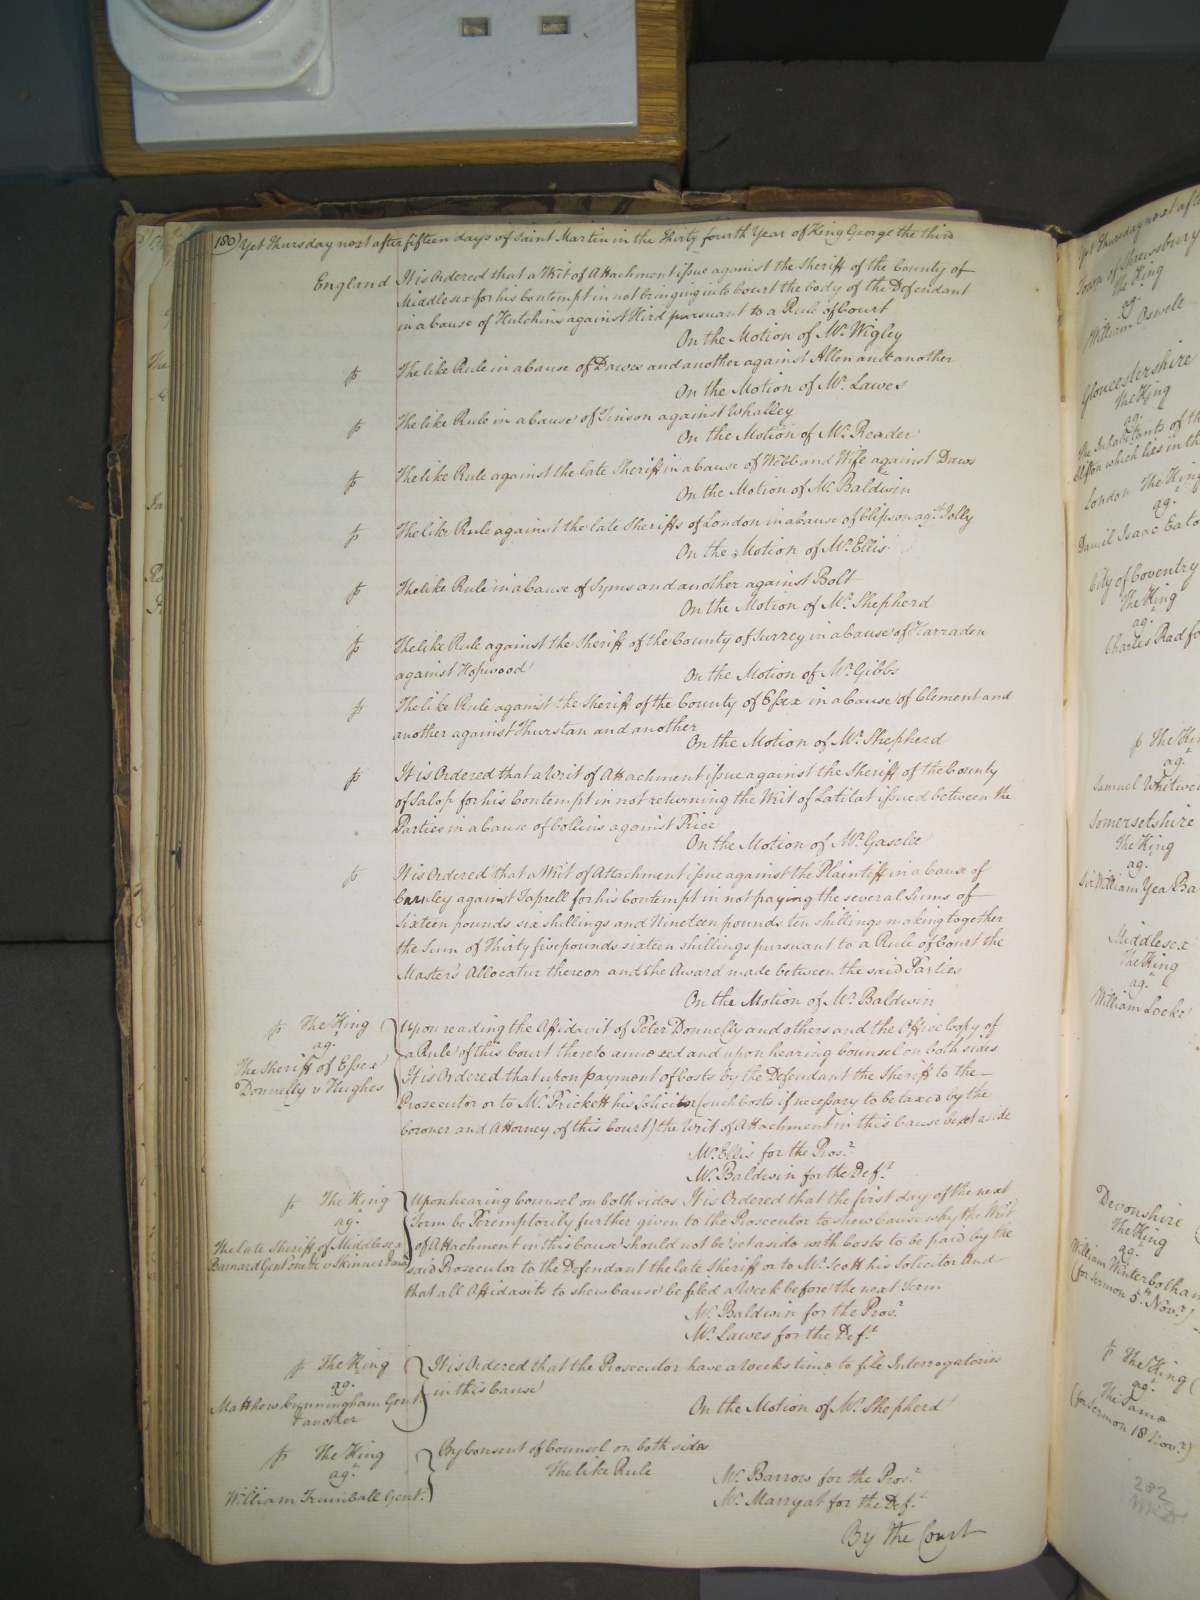 180) Yet Thursday next after fifteen days of Saint Martin in the Thirty fourth Year of King George the third
England It is Ordered that a Writ of Attachment issue against the Sheriff of the County of
Middlesex for his Contempt in not bringing into Court the body of the Defendant
in a Cause of Hutchins against Hird pursuant to a Rule of Court
On the Motion of Mr. Wigley
The like Rule in a Cause of Dawes and another against Allen and another
On the Motion of Mr. Lawes
The like Rule in a Cause of Tinson against Whalley
On the Motion of Mr. Reader
The like Rule against the late Sheriff in a Cause of Webb and Wife against Daws
On the Motion of Mr. Baldwin
The like Rule against the late Sheriffs of London in a Cause of Clipson agst. Jolly
On the Motion of Mr. Ellis
The like Rule in a Cause of Syms and another against Bolt
On the Motion of Mr. Shepherd
The like Rule against the Sheriff of the County of Surrey in a Cause of Harraden
against Hopwood On the Motion of Mr. Gibbs
The like Rule against the Sheriff of the County of Essex in a Cause of Clement and
another against Thurstan and another
On the Motion of Mr. Shepherd
It is Ordered that a Writ of Attachment issue against the Sheriff of the County
of Salop for his Contempt in not returning the Writ of Latitat issued between the
Parties in a Cause of Collins against Price
On the Motion of Mr. Gaselee
It is Ordered that a Writ of Attachment issue against the Plaintiff in a Cause of
against Taprell for his Contempt in not paying the several Sums of
Sixteen pounds six shillings and Nineteen pounds ten shillings making together
the Sum of Thirty five pounds sixteen shillings pursuant to a Rule of Court the
Master's Allocatur thereon and the Award made between the said Parties
On the Motion of Mr. Baldwin
The King
agt.
The Sheriff of Essex
Donnelly v Hughes
Upon reading the Affidavit of Peter Donnelly and others and the Office Copy of
a Rule of this Court thereto annexed and upon hearing Counsel on both sides
It is Ordered that upon payment of Costs by the Defendant the Sheriff to the
Prosecutor or to Mr. Frickett his Solicitor (such Costs if necessary to be taxed by the
Coroner and Attorney of this Court) the Writ of Attachment in this Cause be set aside
Mr. Ellis for the Pros.r
Mr. Baldwin for the Def.t
The King
agt.
The late Sheriff of Middlesex
Barnard Gent one &c v Skinner
Upon hearing Counsel on both sides It is Ordered that the first day of the next
Term be Peremptorily further given to the Prosecutor to shew Cause why the Writ
of Attachment in this Cause should not be set aside with Costs to be paid by the
said Prosecutor to the Defendant the late Sheriff or to Mr. Scott his Solicitor And
that all Affidavits to shew Cause be filed a Week before the next Term
Mr. Baldwin for the Pros.r
Mr. Lawes for the Def.t
The King
agt.
Matthew Cunningham Gent.
& another
It is Ordered that the Prosecutor have a Weeks time to file Interrogatories
in this Cause
On the Motion of Mr. Shepherd
The King
agt.
William Trumball Gent.
By Consent of Counsel on both sides
The like Rule
Mr. Barrow for the Pros.r
Mr. Marryat for the Def.t
By the Court
Yet Thursday next afte
Town of Shrewsbury
The King
agt.
William Oswell
Gloucestershire
The King
agt.
The Inhabitants of th
Clifton which lies in th
London The King
agt.
Daniel Isaac Eato
City of Coventry
The King
agt.
Charles Radfo
The Kin
agt.
Samuel Whitwe
Somersetshire
The King
agt.
Sir William Yea Ba
Middlesex
The King
agt.
William Locke
Devonshire
The King
agt.
William Winterbotham
(for Sermon 5th Nov.r)
The King
agt.
The Same
(for Sermon 18 Nov.r)
282